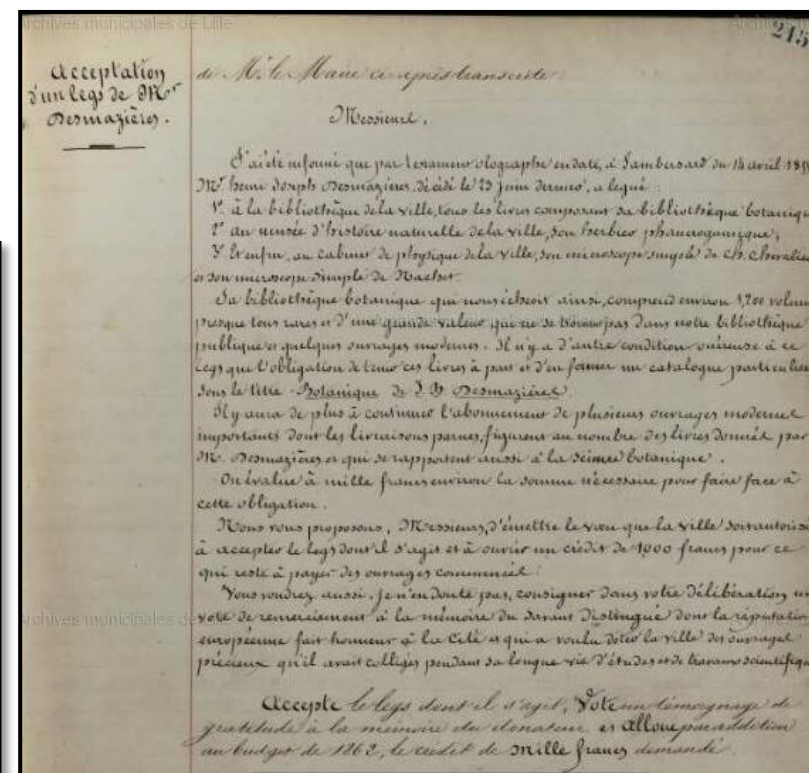 Archives municipales de Lille
215
Acceptation
d'un legs de Mr
Desmazières.
de Mr. le Maire ci-après transcrite.
Messieurs,
J'ai été informé que par testament olographe en date, à Lambersart du 14 avril 185
Mr. Henri Joseph Desmazières, décédé le 23 juin dernier, a legué :
1° à la bibliothèque de la ville, tous les livres composant sa bibliothèque botanique
2° au musée d'histoire naturelle de la ville, son herbier phanerogamique,
3° Et enfin, au cabinet de physique de la ville, son microscope simple de Ch. Chevalier
et son microscope simple de Nachet.
Sa bibliothèque botanique qui nous échoit ainsi, comprend environ 1,200 volum
presque tous rares et d'une grande valeur qui ne se trouve pas dans notre bibliothèque
publique et quelques ouvrages modernes. Il n'y a d'autre condition onéreuse à ce
legs que l'obligation de tenir ces livres à part et d'en former un catalogue particulier
sous le titre Botanique de J. B. Desmazières.
Il y aura de plus à continuer l'abonnement de plusieurs ouvrages modernes
importants dont les livraisons parues, figurent au nombre des livres donnés par
Mr. Desmazières et qui se rapportent aussi à la science botanique.
On évalue à mille francs environ la somme nécessaire pour faire face à
cette obligation.
Nous vous proposons, Messieurs, d'émettre le vœu que la ville soit autoris
à accepter le legs dont il s'agit et à ouvrir un crédit de 1000 francs pour ce
qui reste à payer des ouvrages commencés.
Vous voudrez aussi, je n'en doute pas, consigner dans votre délibération un
vote de remerciement à la mémoire du savant distingué dont la réputation
européenne fait honneur à la Cité et qui a voulu doter la ville des ouvrages
précieux qu'il avait colligés pendant sa longue vie d'études et de travaux scientifiqu
Archives municipales de
Accepte le legs dont il s'agit, Vote un témoignage de
gratitude à la mémoire du donateur et alloue par addition
au budget de 1862, le crédit de mille francs demandé.